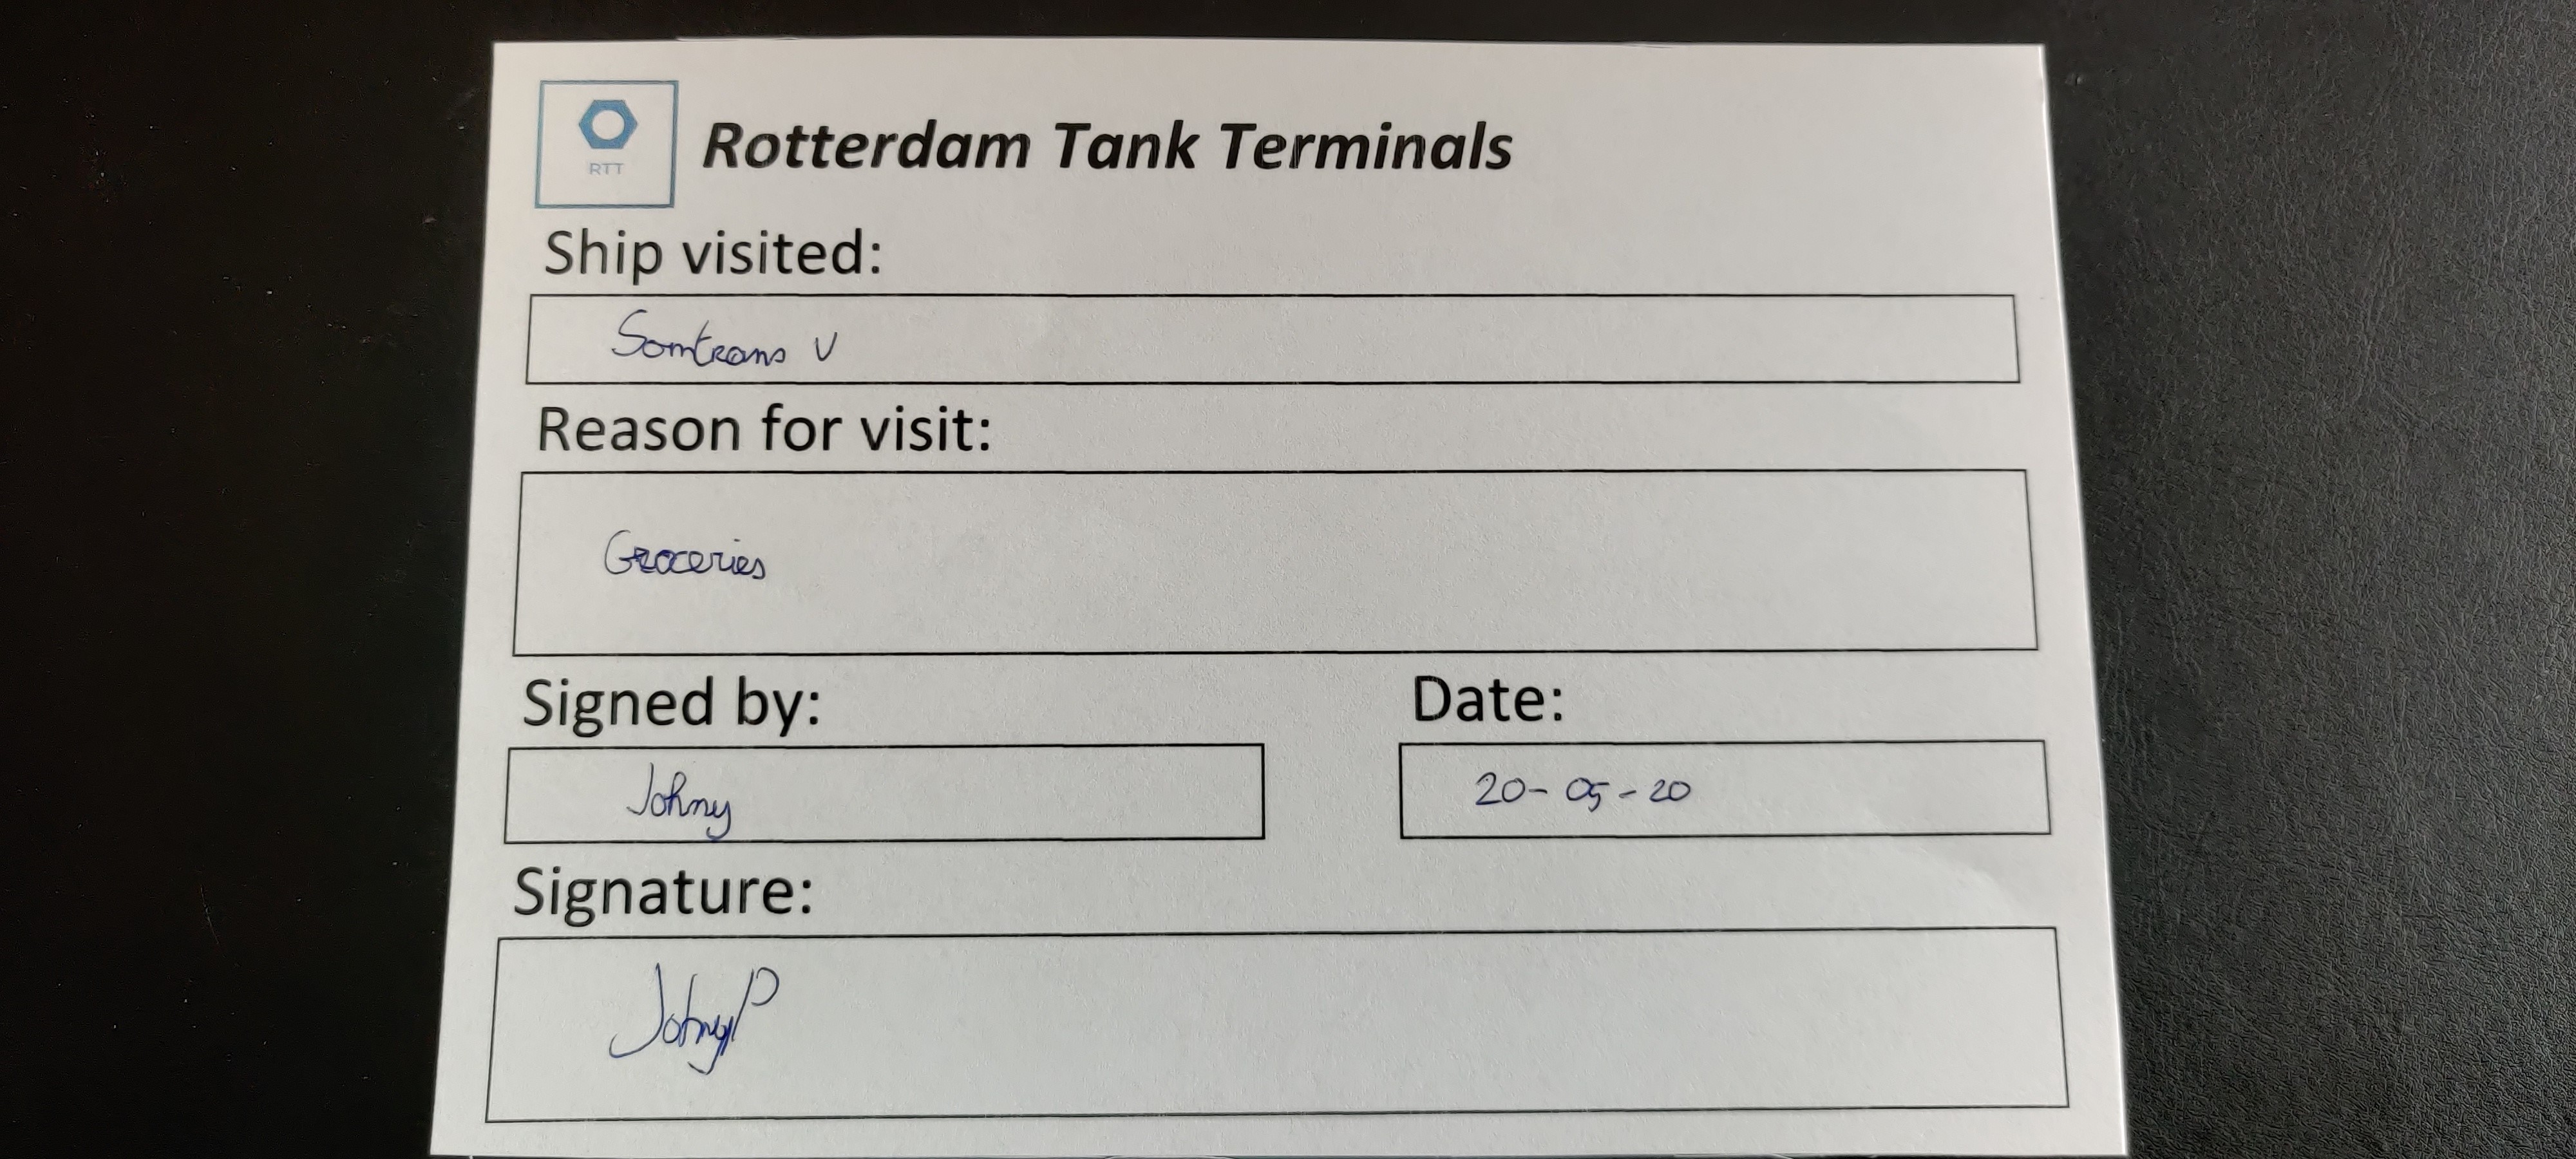 RTT
Rotterdam Tank Terminals
Ship visited:
Somtrans V
Reason for visit:
Groceries
Signed by:
Johny
Date:
20-05-20
Signature:
JohnyP